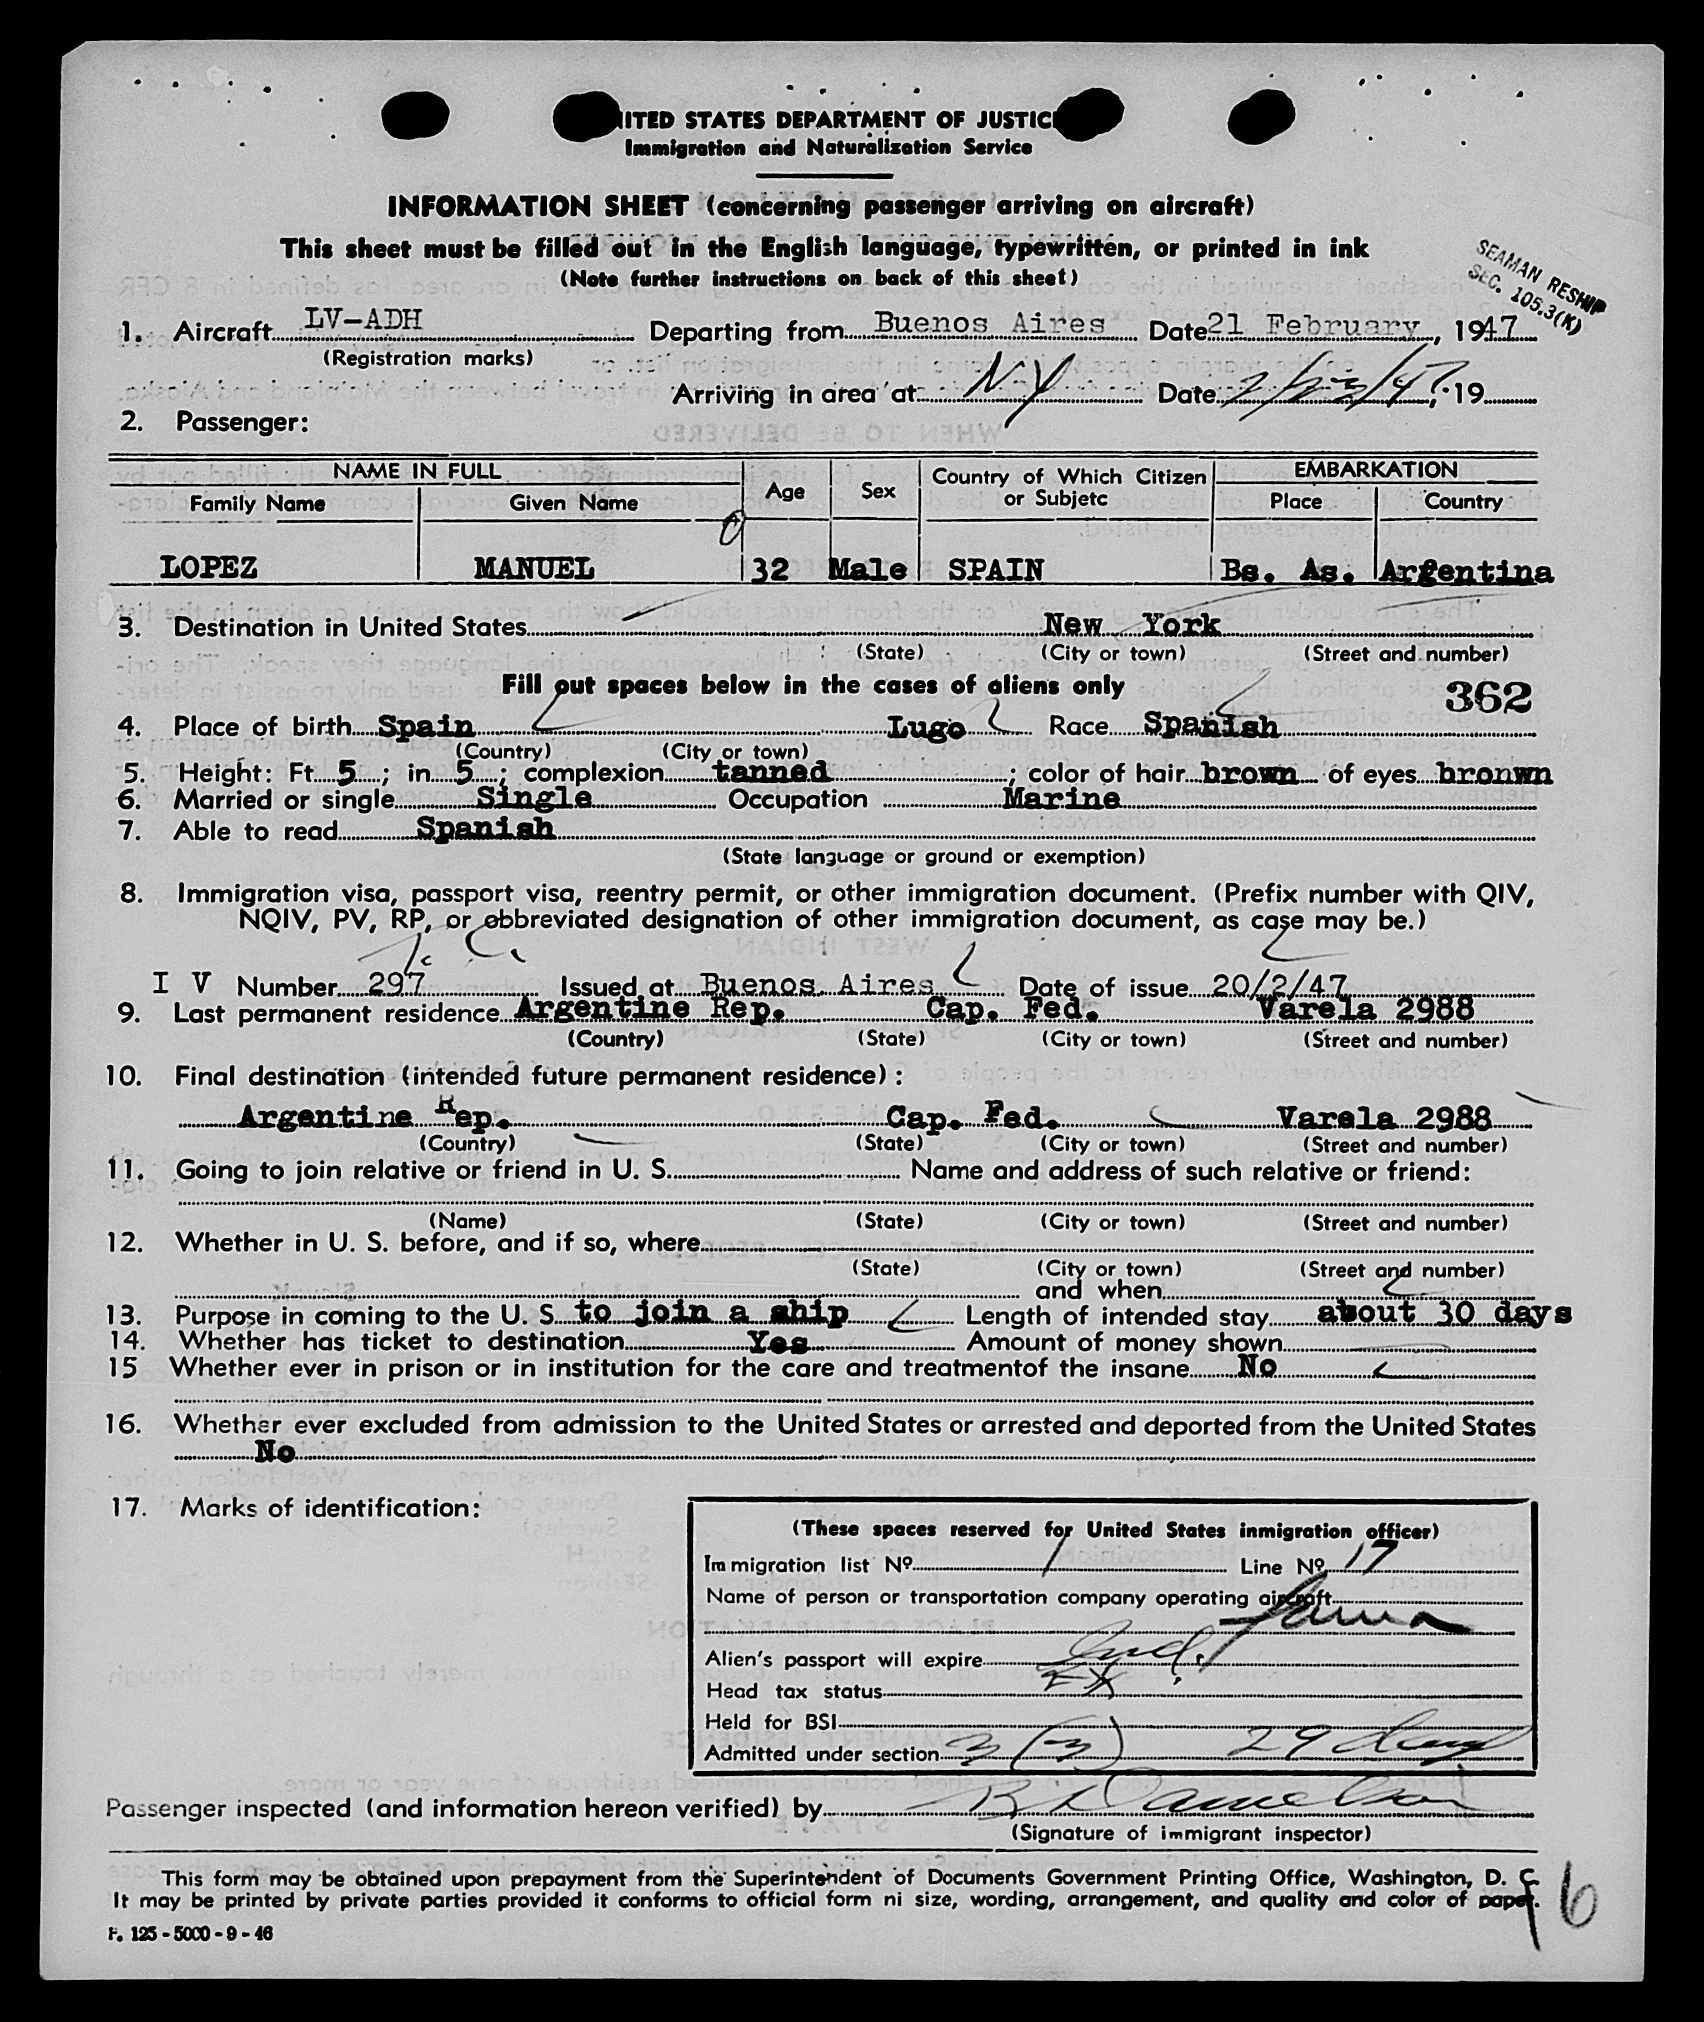 ITED STATES DEPARTMENT OF JUSTIC
Immigration and Naturalization Service
INFORMATION SHEET (concerning passenger arriving on aircraft)
This sheet must be filled out in the English language, typewritten, or printed in ink
(Note further instructions on back of this sheet)
SEAMAN RESHIP
SEC. 105.3(K)
1. Aircraft LV-ADH Departing from Buenos Aires Date 21 February, 1947
(Registration marks)
Arriving in area at NY Date 2/23/47, 19
2. Passenger:
NAME IN FULL Age Sex Country of Which Citizen or Subjetc EMBARKATION
Family Name Given Name Place Country
LOPEZ MANUEL 32 Male SPAIN Bs. As. Argentina
3. Destination in United States New York
(State) (City or town) (Street and number)
Fill out spaces below in the cases of aliens only 362
4. Place of birth Spain Lugo Race Spanish
(Country) (City or town)
5. Height: Ft. 5; in. 5; complexion tanned; color of hair brown of eyes bronwn
6. Married or single Single Occupation Marine
7. Able to read Spanish
(State language or ground or exemption)
8. Immigration visa, passport visa, reentry permit, or other immigration document. (Prefix number with QIV,
NQIV, PV, RP, or abbreviated designation of other immigration document, as case may be.)
I V Number 297 Issued at Buenos Aires Date of issue 20/2/47
9. Last permanent residence Argentine Rep. Cap. Fed. Varela 2988
(Country) (State) (City or town) (Street and number)
10. Final destination (intended future permanent residence):
Argentine Rep. Cap. Fed. Varela 2988
(Country) (State) (City or town) (Street and number)
11. Going to join relative or friend in U. S. Name and address of such relative or friend:
(Name) (State) (City or town) (Street and number)
12. Whether in U. S. before, and if so, where
(State) (City or town) (Street and number)
and when
13. Purpose in coming to the U. S. to join a ship Length of intended stay about 30 days
14. Whether has ticket to destination Yes Amount of money shown
15 Whether ever in prison or in institution for the care and treatmentof the insane No
16. Whether ever excluded from admission to the United States or arrested and deported from the United States
No
17. Marks of identification:
(These spaces reserved for United States inmigration officer)
Immigration list Nº 1 Line Nº 17
Name of person or transportation company operating aircraft Fama
Alien's passport will expire Ind.
Head tax status EX
Held for BSI
Admitted under section 3(3) 29 days
Passenger inspected (and information hereon verified) by
(Signature of immigrant inspector)
This form may be obtained upon prepayment from the Superintendent of Documents Government Printing Office, Washington, D. C.
It may be printed by private parties provided it conforms to official form ni size, wording, arrangement, and quality and color of paper.
F. 125 - 5000 - 9 - 46
6